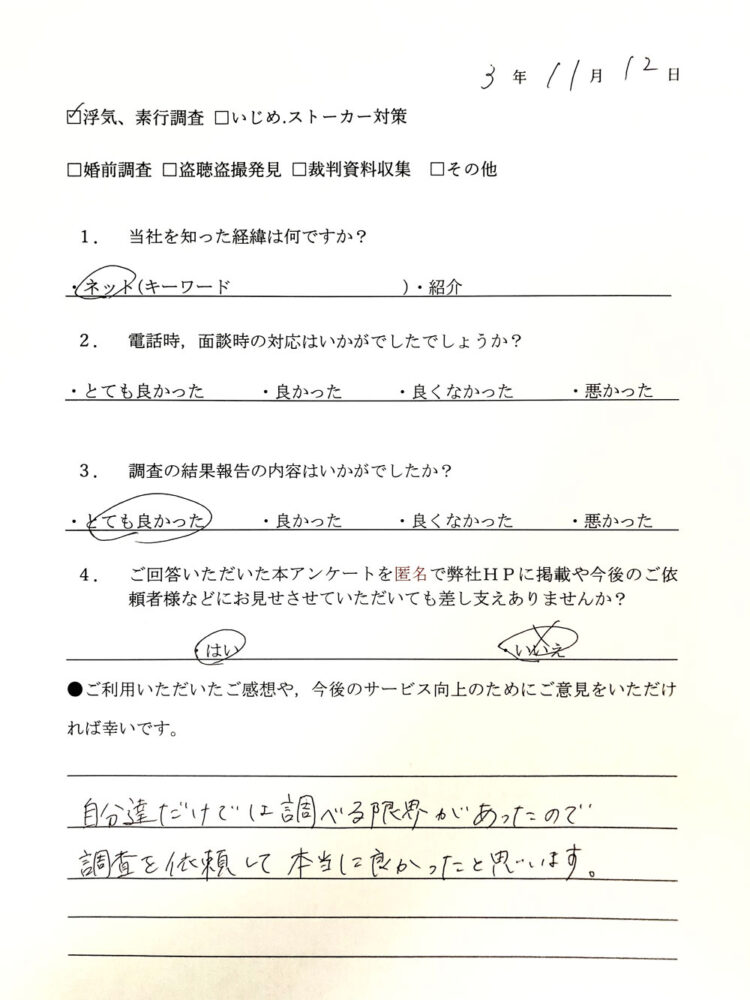 3年11月12日
☑浮気、素行調査 □いじめ.ストーカー対策
□婚前調査 □盗聴盗撮発見 □裁判資料収集 □その他
１． 当社を知った経緯は何ですか？
・ネット(キーワード )・紹介
２． 電話時，面談時の対応はいかがでしたでしょうか？
・とても良かった ・良かった ・良くなかった ・悪かった
３． 調査の結果報告の内容はいかがでしたか？
・とても良かった ・良かった ・良くなかった ・悪かった
４． ご回答いただいた本アンケートを匿名で弊社ＨＰに掲載や今後のご依
頼者様などにお見せさせていただいても差し支えありませんか？
・はい ・いいえ
●ご利用いただいたご感想や，今後のサービス向上のためにご意見をいただけ
れば幸いです。
自分達だけでは調べる限界があったので
調査を依頼して本当に良かったと思います。